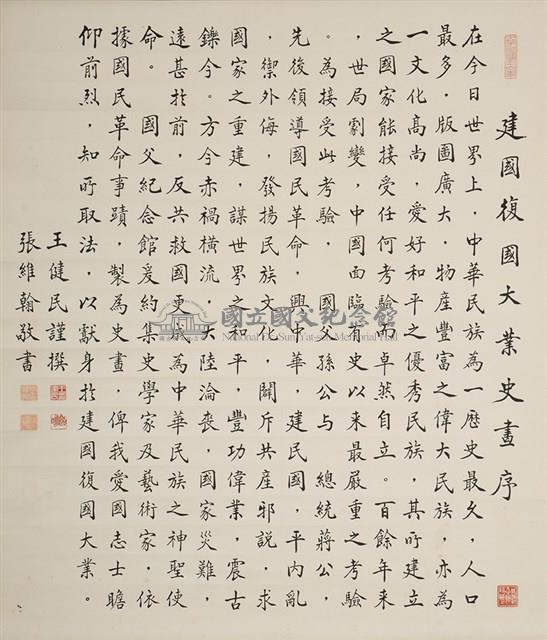 建國復國大業史畫序
在今日世界上，中華民族為一歷史最久，人口
最多，版圖廣大，物產豐富之偉大民族，亦為
一文化高尚，愛好和平之優秀民族，其所建立
之國家能接受任何考驗而卓然自立。百餘年來
，世局劇變，中國面臨有史以來最嚴重之考驗
。為接受此考驗，國父孫公與　總統蔣公，
先後領導國民革命，興中華，建民國，平內亂
，禦外侮，發揚民族文化，闢斥共產邪說，求
國家之重建，謀世界之和平，豐功偉業，震古
鑠今。方今赤禍橫流，大陸淪喪，國家災難，
遠甚於前，反共救國更成為中華民族之神聖使
命。　國父紀念館爰約集史學家及藝術家，依
據國民革命事蹟，製為史畫，俾我愛國志士瞻
仰前烈，知所取法，以獻身於建國復國大業。
王健民謹撰
張維翰敬書
國立國父紀念館
National Dr. Sun Yat-sen Memorial Hall